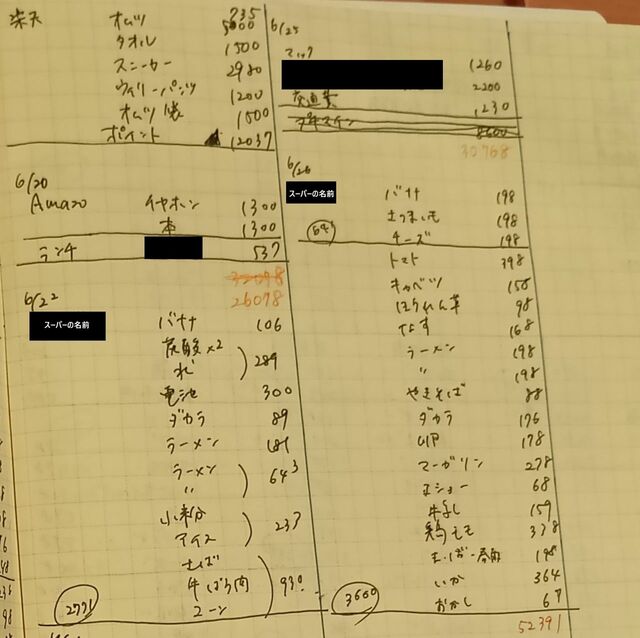 楽天 オムツ 735
タオル 5000
スニーカー 1500
2980
オムツ袋 1200
ポイント 1500
12037
6/20
Amazo イヤホン 1300
本 1300
ランチ 537
32098
26098
6/22
スーパーの名前
バナナ 106
炭酸×2
水 ) 289
電池 300
ダカラ 89
ラーメン 181
ラーメン
〃 ) 643
小麦粉
アイス ) 237
さば
牛ばら肉
コーン ) 930
2771
6/25
マック 1260
2200
交通費 1230
8600
30768
6/26
スーパーの名前
バナナ 198
さつまいも 198
チーズ 198
トマト 398
キャベツ 158
ほうれん草 98
なす 168
ラーメン 198
〃 198
やきそば 88
ダカラ 176
178
マーガリン 278
コショー 68
159
鶏もも 338
198
いか 364
おかし 67
3600
52391